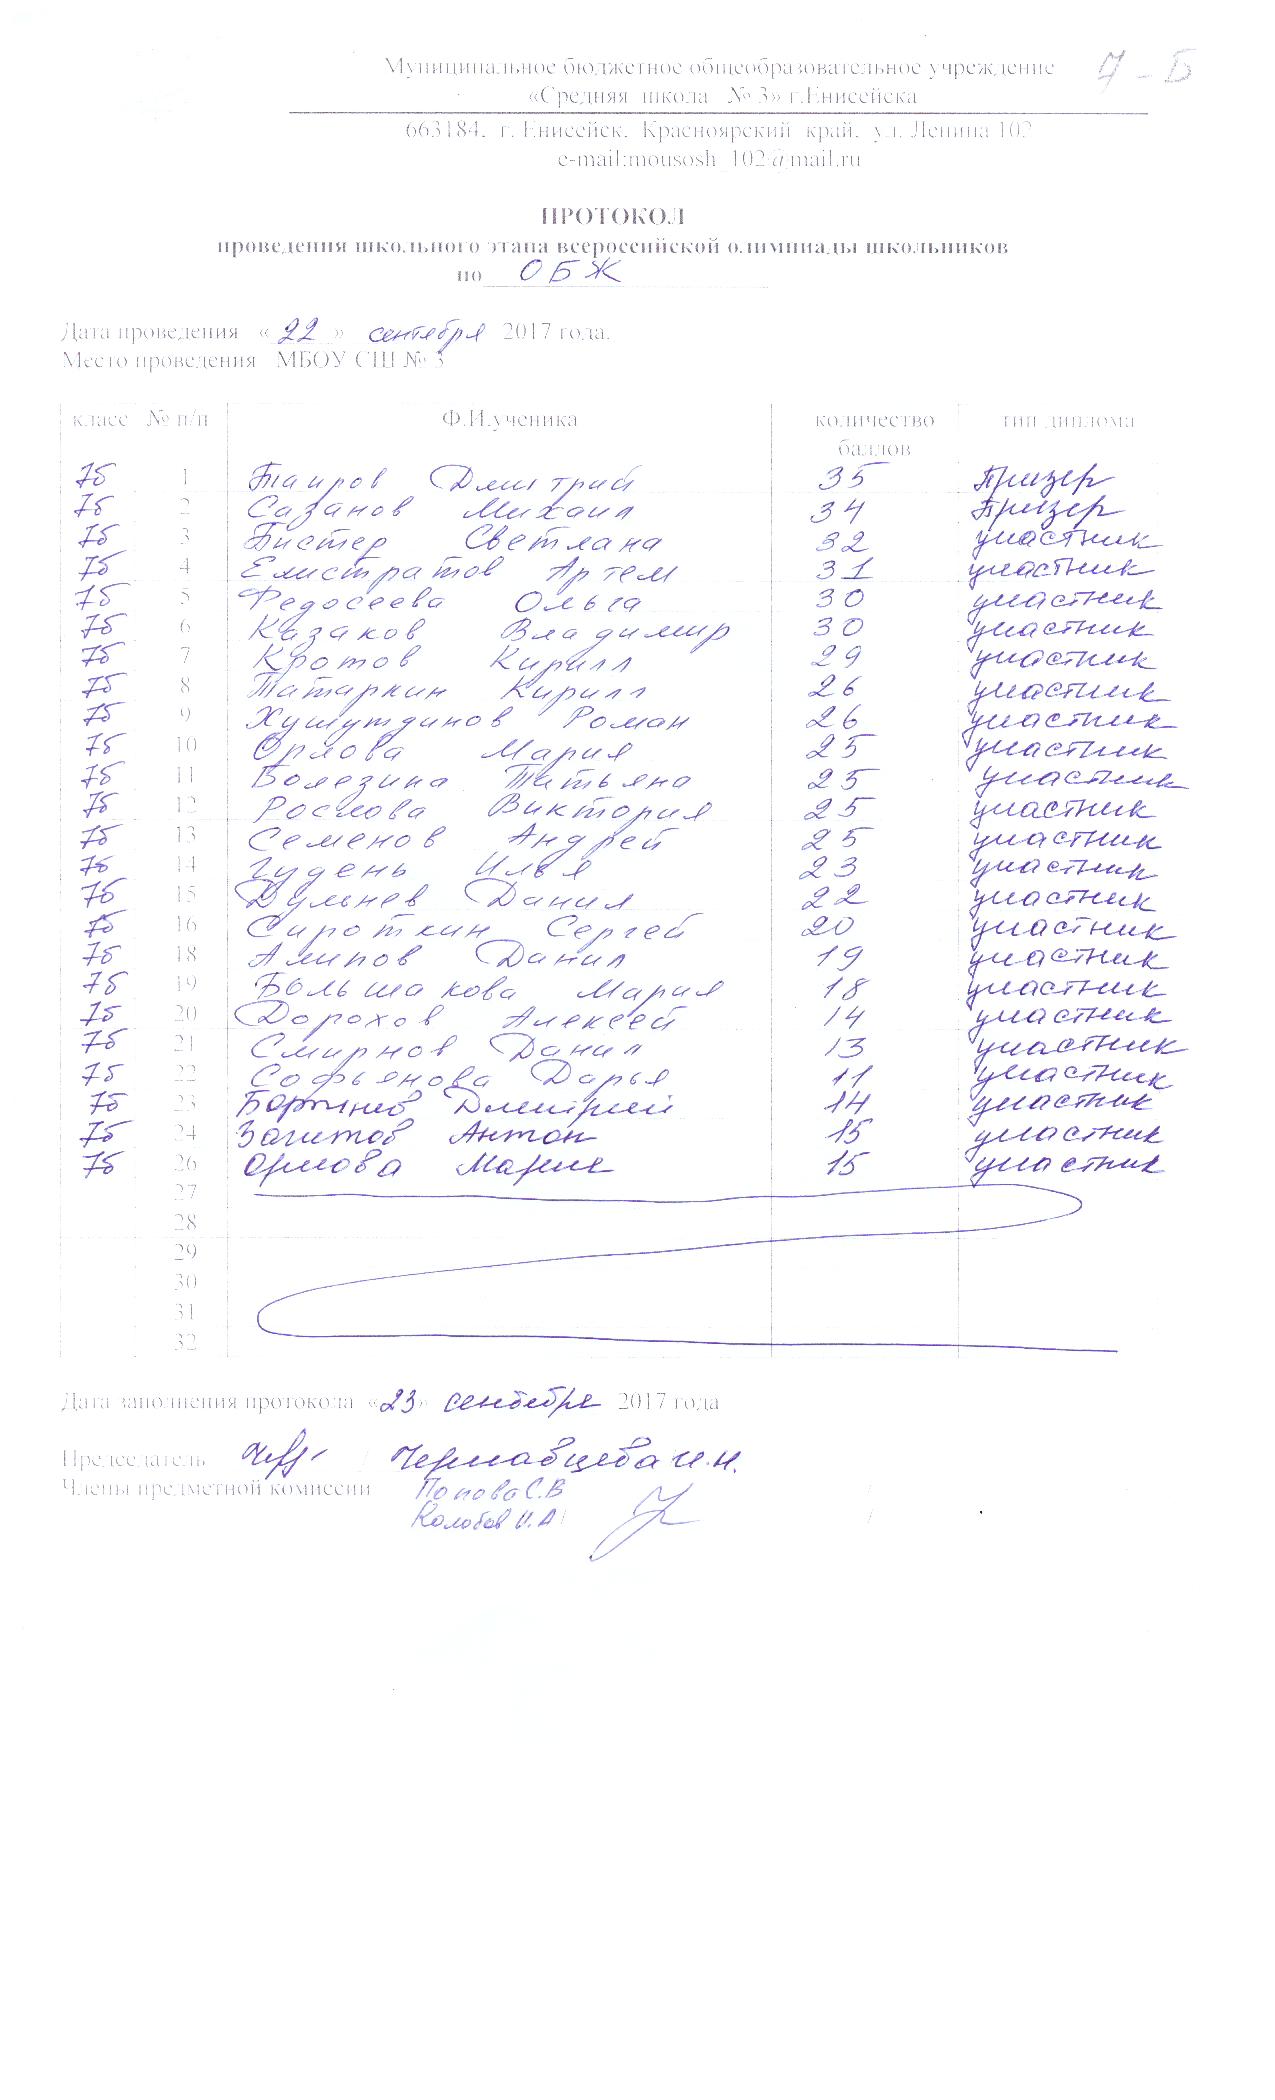 Муниципальное бюджетное общеобразовательное учреждение 7 - Б
«Средняя школа № 3» г.Енисейска
663184, г. Енисейск, Красноярский край, ул. Ленина 102
e-mail:mousosh_102@mail.ru
ПРОТОКОЛ
проведения школьного этапа всероссийской олимпиады школьников
по ОБЖ
Дата проведения «22» сентября 2017 года.
Место проведения МБОУ СШ № 3
класс № п/п Ф.И.ученика количество баллов тип диплома
7б 1 Таиров Дмитрий 35 Призер
7б 2 Сазанов Михаил 34 Призер
7б 3 Пистер Светлана 32 участник
7б 4 Елистратов Артем 31 участник
7б 5 Федосеева Ольга 30 участник
7б 6 Казаков Владимир 30 участник
7б 7 Кротов Кирилл 29 участник
7б 8 Татаркин Кирилл 26 участник
7б 9 Хушутдинов Роман 26 участник
7б 10 Орлова Мария 25 участник
7б 11 Болезина Татьяна 25 участник
7б 12 Рослова Виктория 25 участник
7б 13 Семенов Андрей 25 участник
7б 14 Гудень Илья 23 участник
7б 15 Дульнев Данил 22 участник
7б 16 Сироткин Сергей 20 участник
7б 18 Алипов Данил 19 участник
7б 19 Большакова Мария 18 участник
7б 20 Дорохов Алексей 14 участник
7б 21 Смирнов Данил 13 участник
7б 22 Софьянова Дарья 11 участник
7б 23 Дмитрий 14 участник
7б 24 Загитов Антон 15 участник
7б 26 Орлова Мария 15 участник
27
28
29
30
31
32
Дата заполнения протокола «23» сентября 2017 года
Председатель / Чернавцева И.Н.
Члены предметной комиссии Попова С.В /
Колобов И.А / /